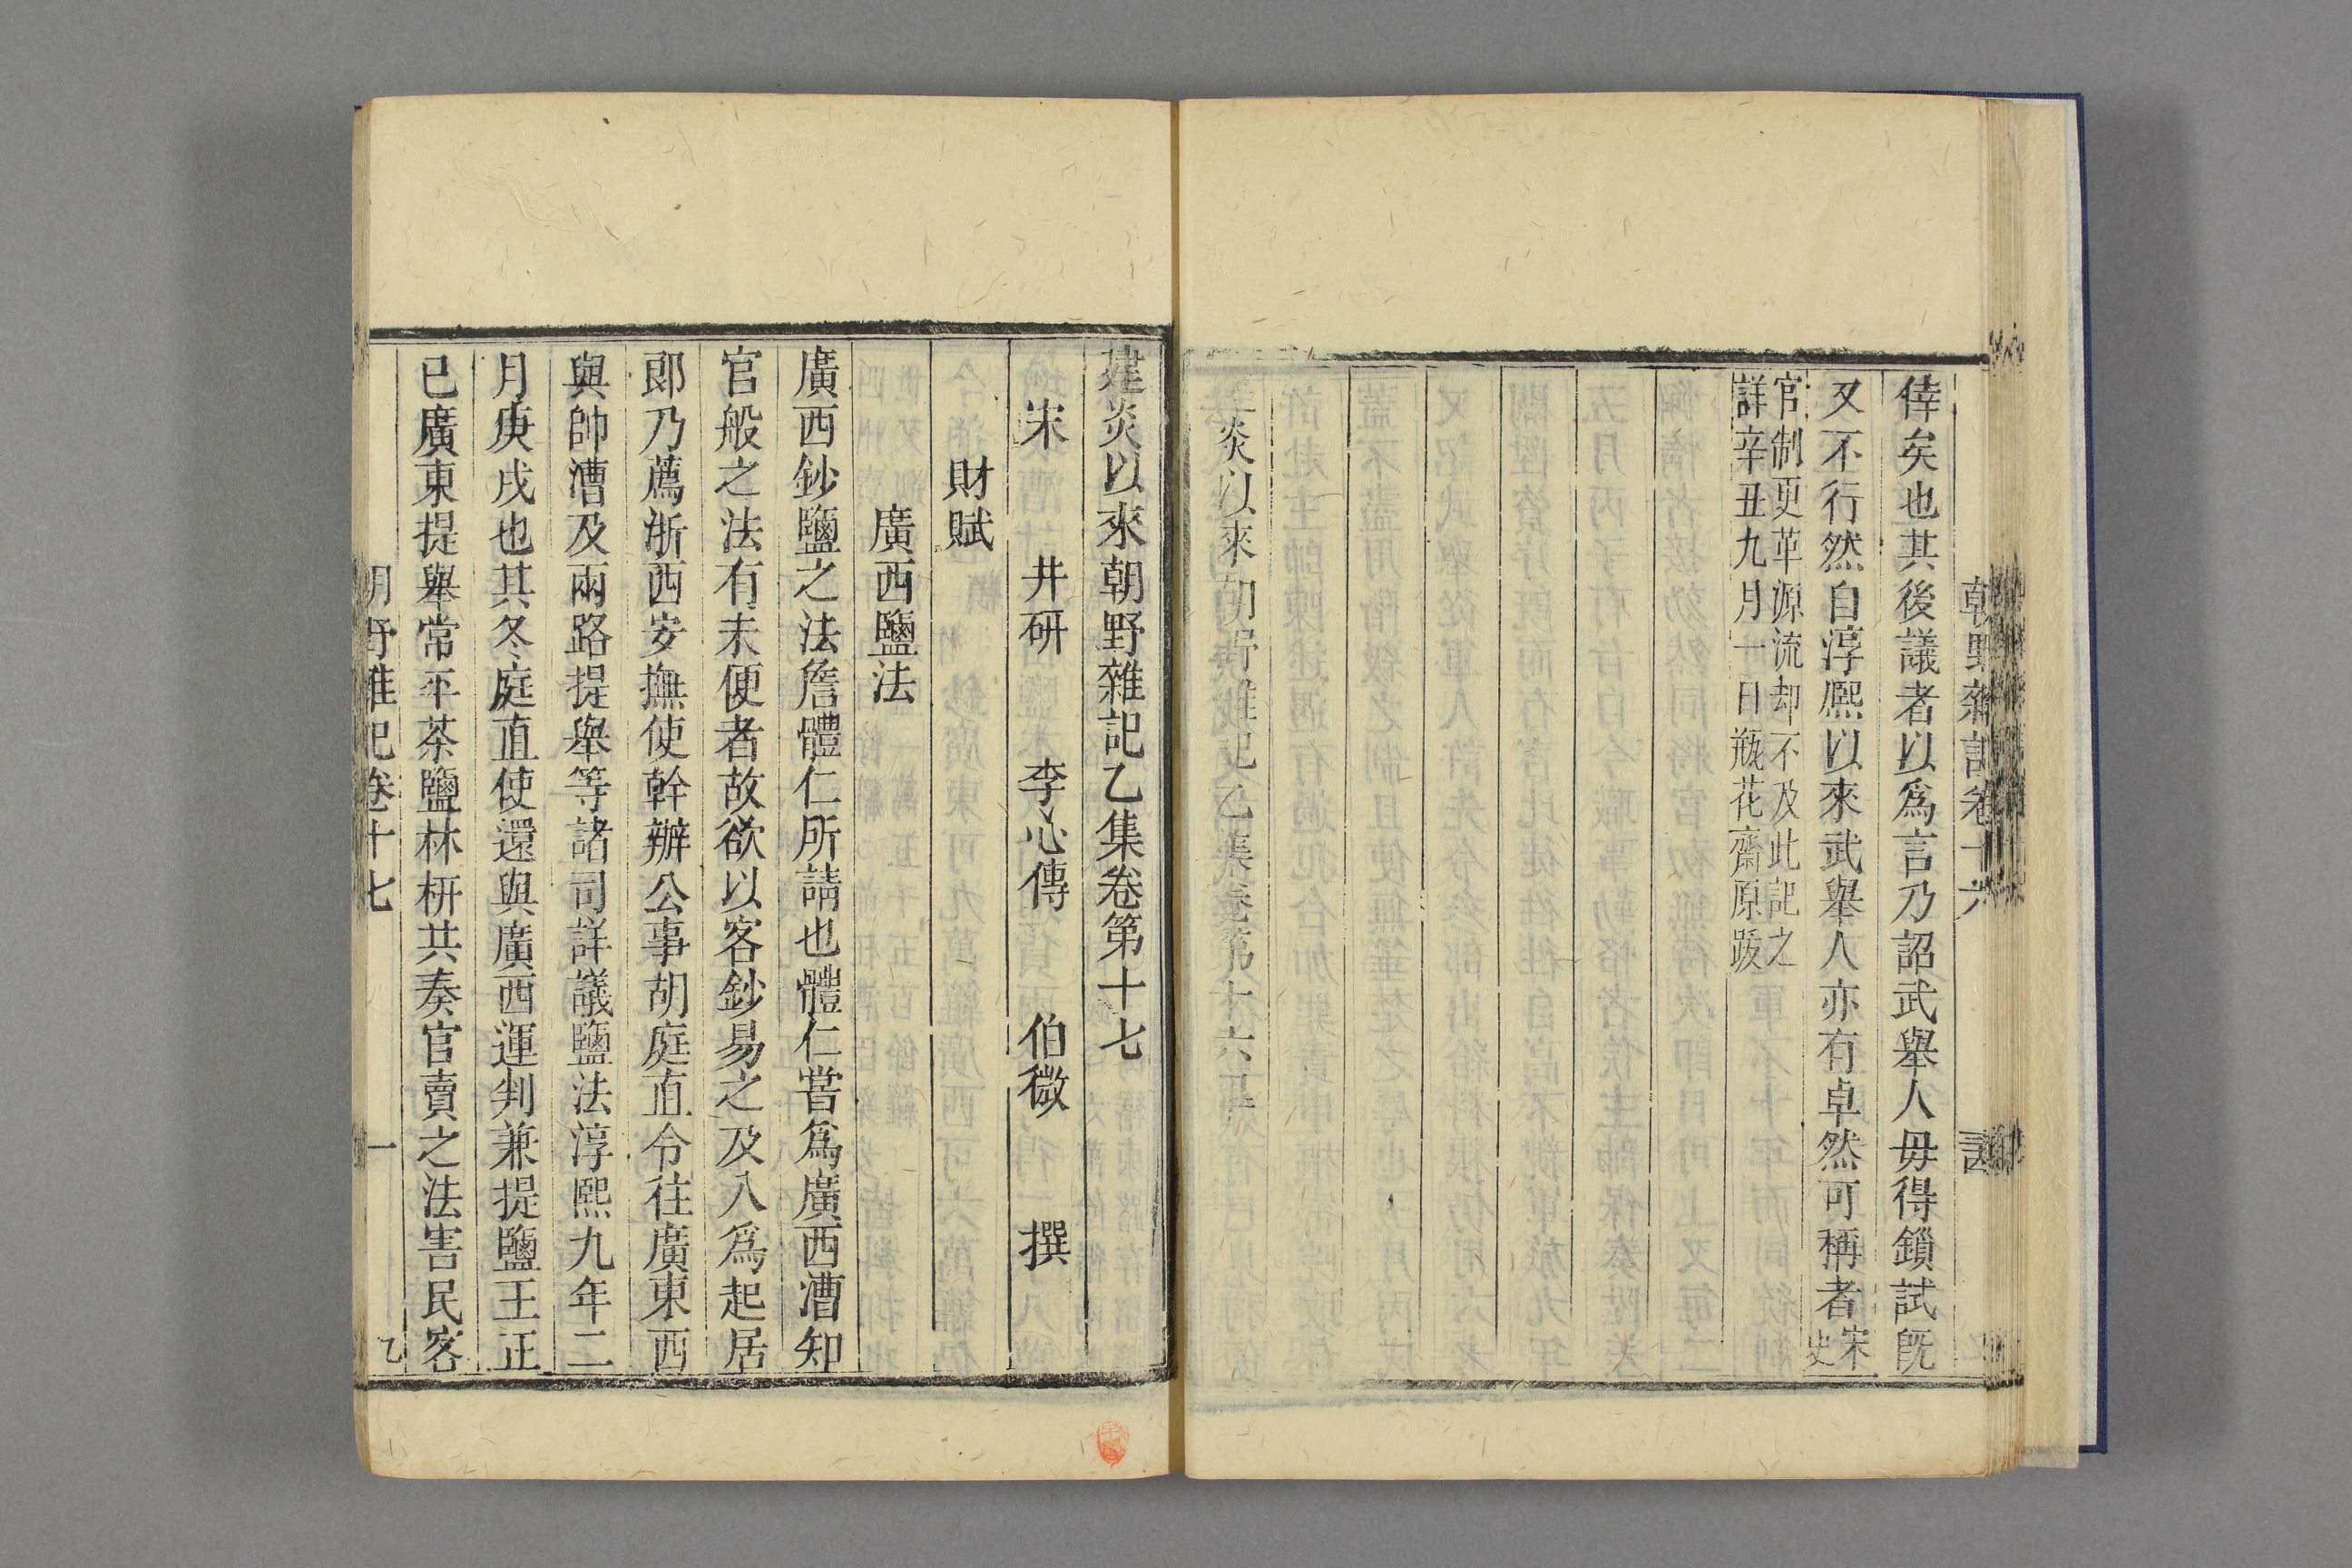 倖矣也其後議者以爲言乃詔武舉人毋得鎖試旣
又不行然自淳熈以來武舉人亦有卓然可稱者宋史
官制更革源流却不及此記之
詳辛丑九月一日瓶花齋原跋
炎以來朝野雜記乙集卷第十六
朝野雜記卷十六
建炎以來朝野雜記乙集卷第十七
宋 井研 李心傳 伯微 撰
財賦
廣西鹽法
廣西鈔鹽之法詹體仁所請也體仁甞爲廣西漕知
官般之法有未便者故欲以客鈔易之及入爲起居
郎乃薦浙西安撫使幹辦公事胡庭直令往廣東西
與帥漕及兩路提舉等諸司詳議鹽法淳熙九年二
月庚戌也其冬庭直使還與廣西運判兼提鹽王正
已廣東提舉常平茶鹽林枅共奏官賣之法害民客
朝野雜記卷十七 一 乙